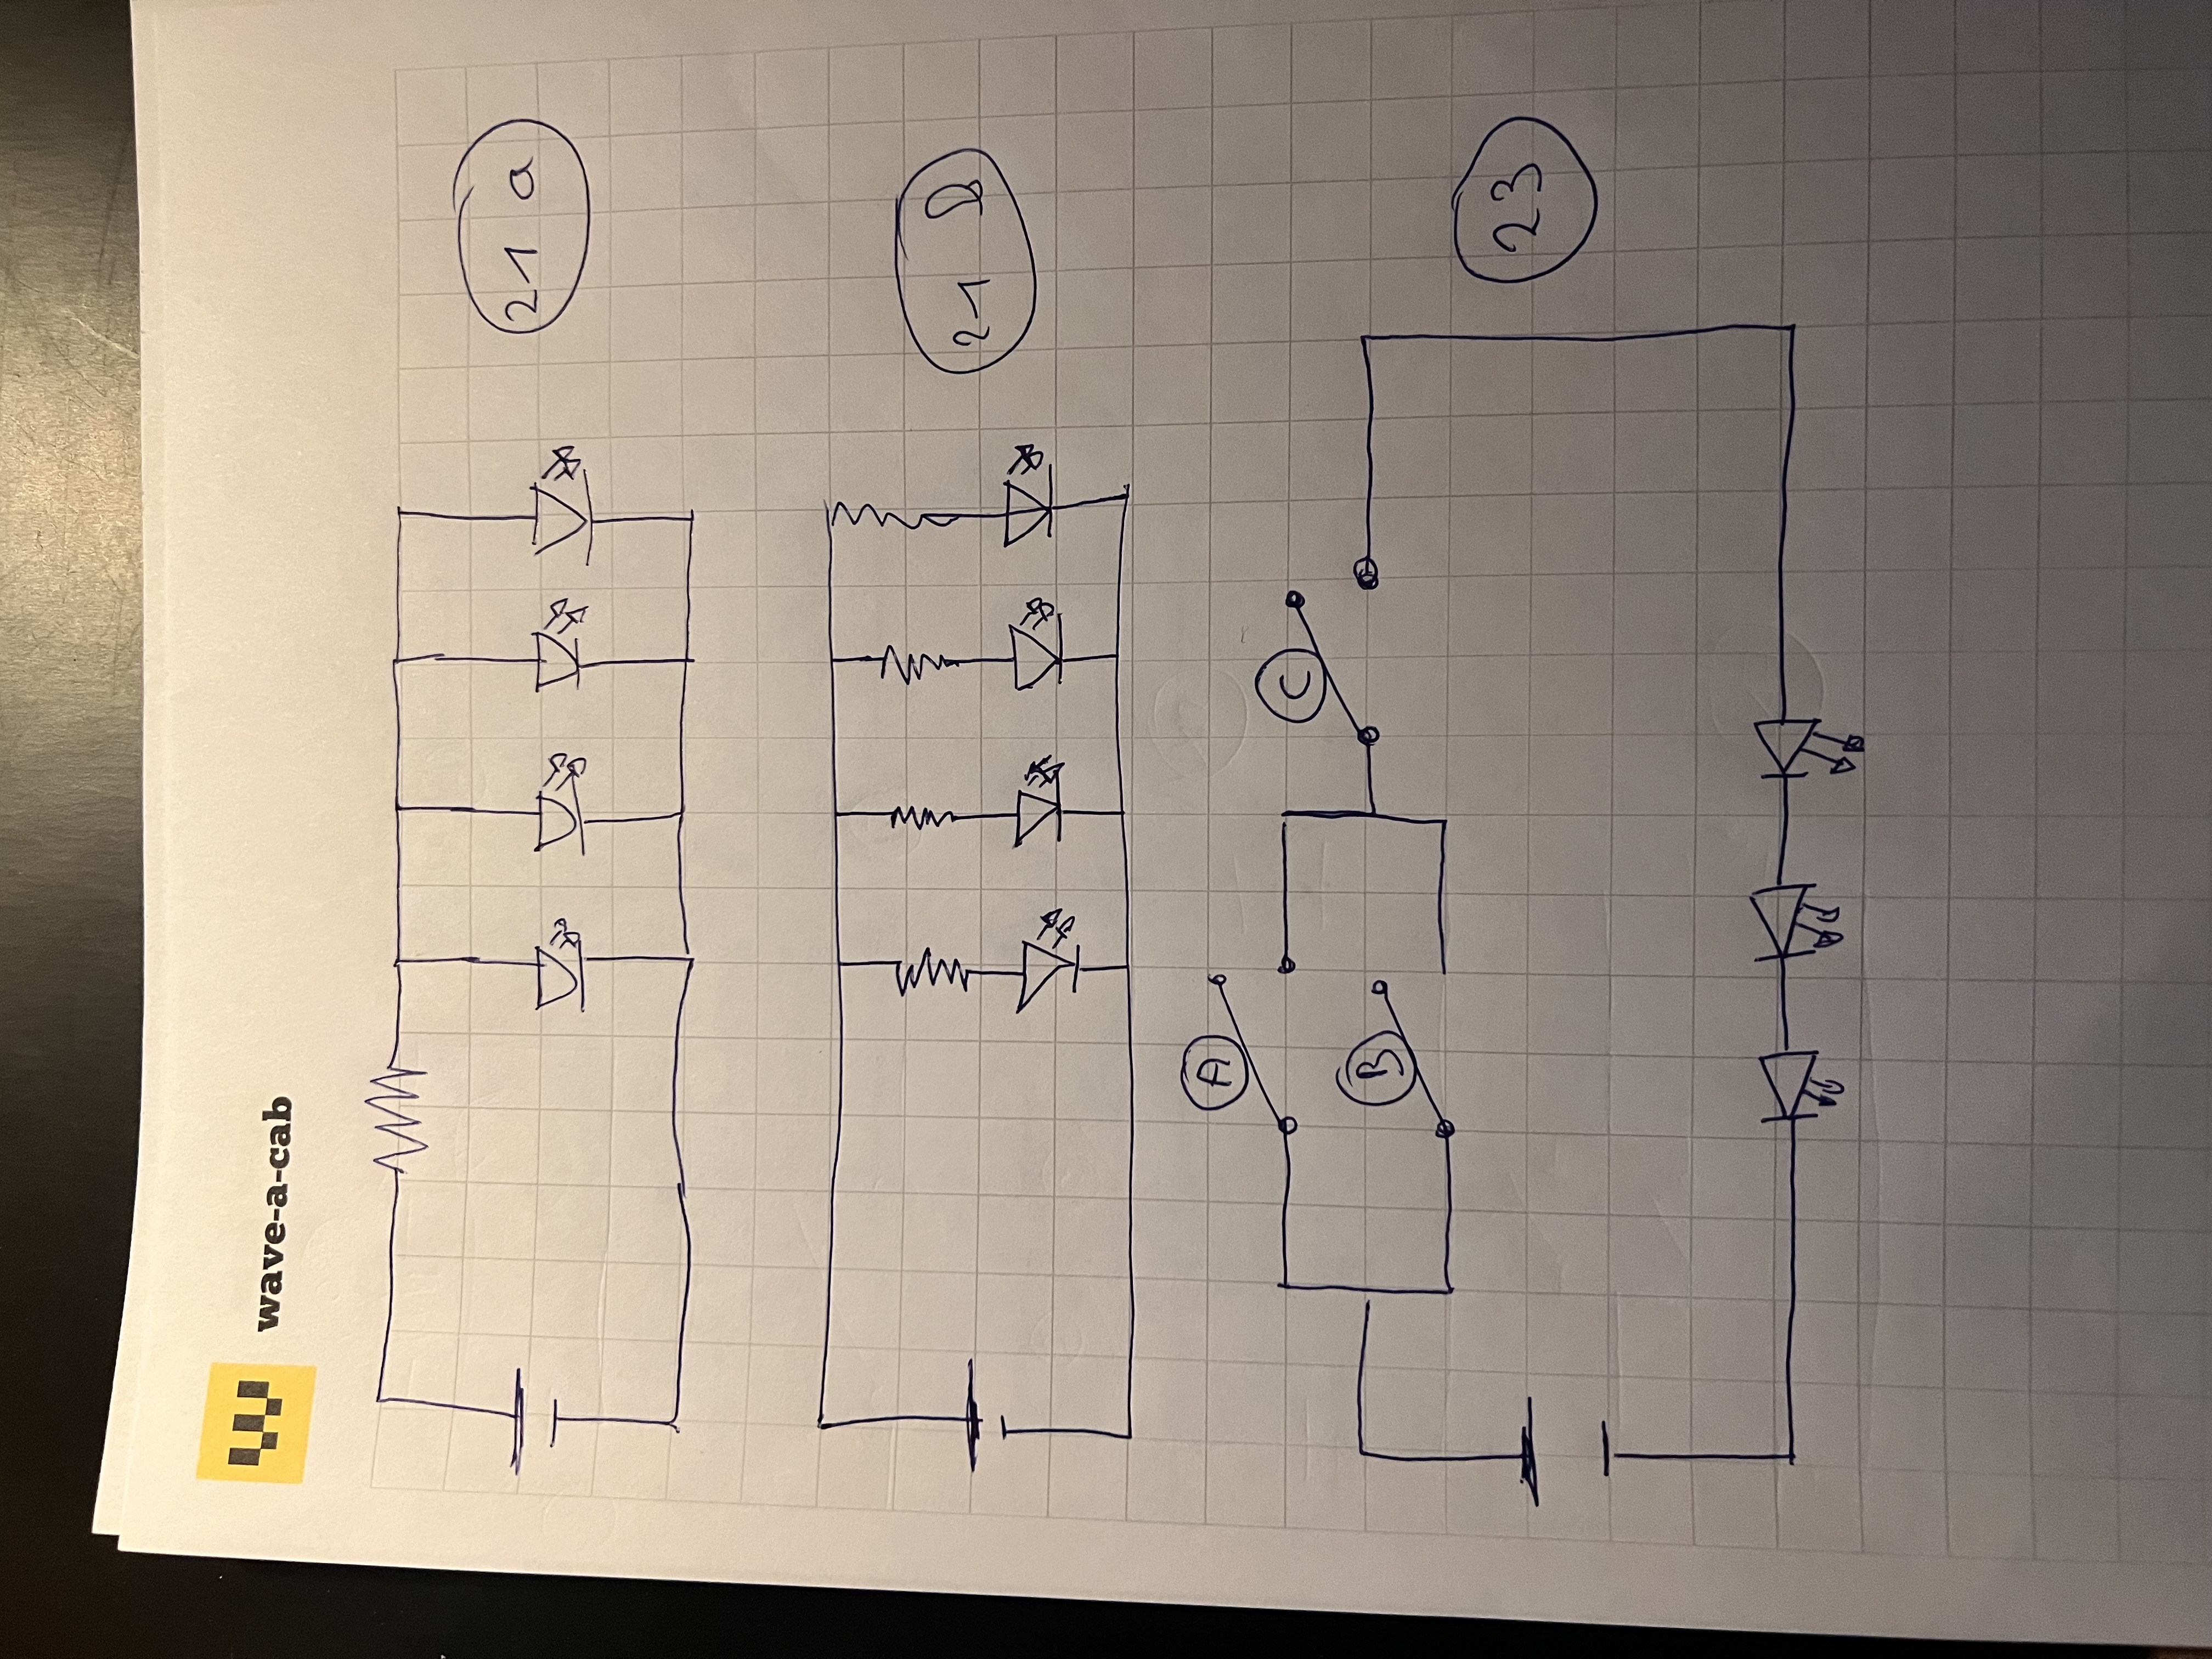 wave-a-cab
21 a
21 b
A
C
B
23